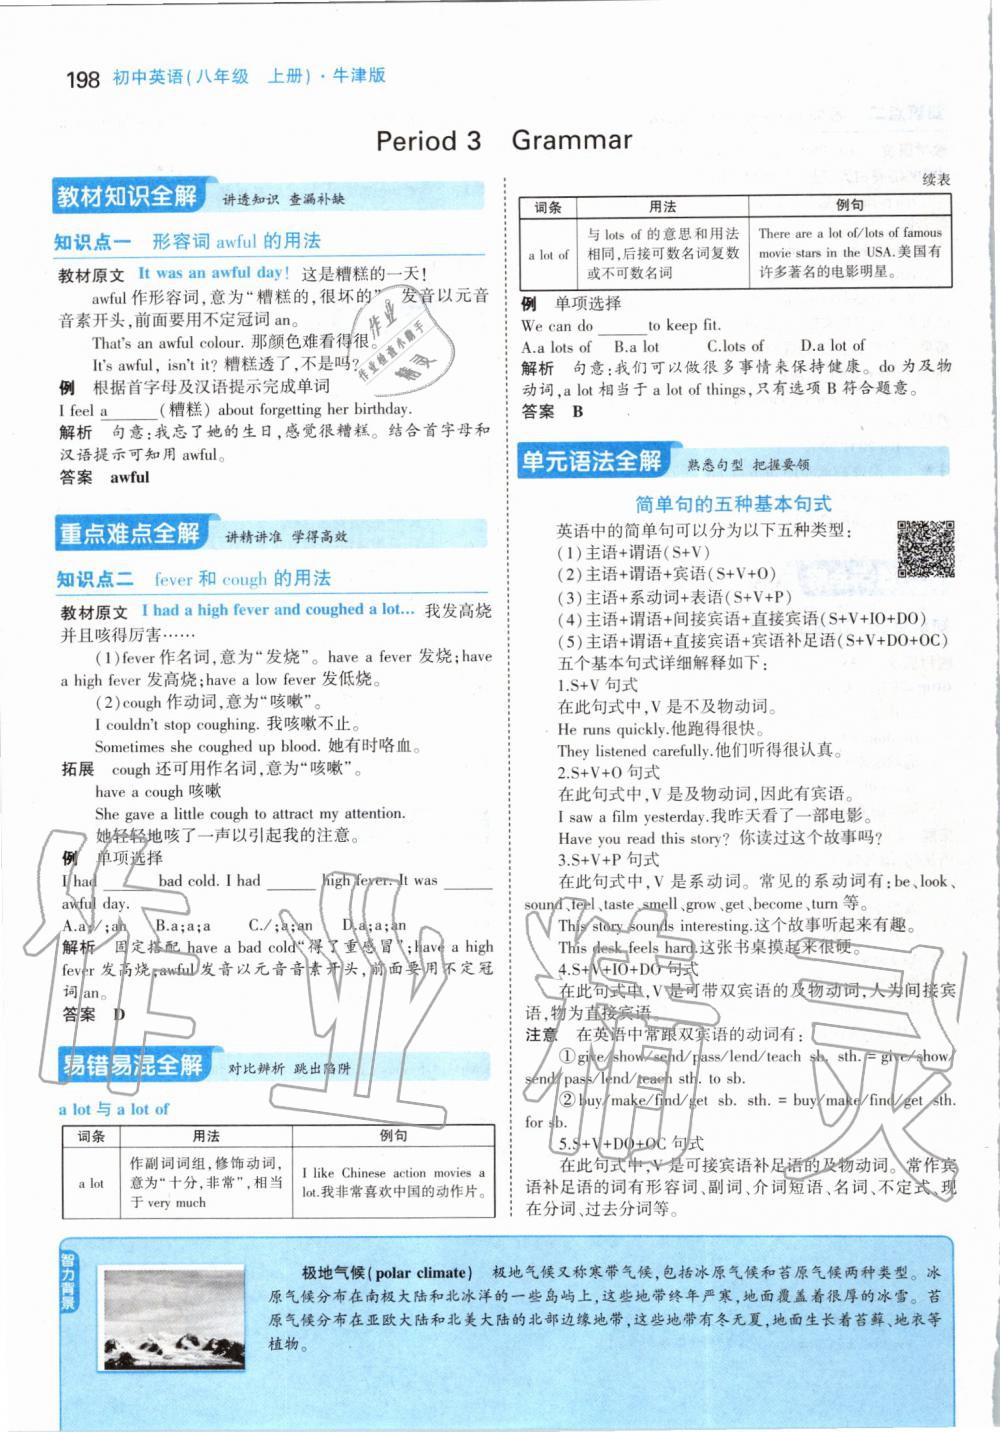 198 初中英语(八年级 上册)·牛津版
Period 3 Grammar
教材知识全解 讲透知识 查漏补缺
知识点一 形容词 awful 的用法
教材原文 It was an awful day! 这是糟糕的一天!
awful 作形容词,意为“糟糕的,很坏的” 发音以元音
音素开头,前面要用不定冠词 an。
That's an awful colour. 那颜色难看得很。
It's awful, isn't it? 糟糕透了,不是吗?
例 根据首字母及汉语提示完成单词
I feel a______(糟糕) about forgetting her birthday.
解析 句意:我忘了她的生日,感觉很糟糕。结合首字母和
汉语提示可知用 awful。
答案 awful
重点难点全解 讲精讲准 学得高效
知识点二 fever 和 cough 的用法
教材原文 I had a high fever and coughed a lot... 我发高烧
并且咳得厉害……
(1)fever 作名词,意为“发烧”。have a fever 发烧;have
a high fever 发高烧;have a low fever 发低烧。
(2)cough 作动词,意为“咳嗽”。
I couldn't stop coughing. 我咳嗽不止。
Sometimes she coughed up blood. 她有时咯血。
拓展 cough 还可用作名词,意为“咳嗽”。
have a cough 咳嗽
She gave a little cough to attract my attention.
她轻轻地咳了一声以引起我的注意。
例 单项选择
I had ______ bad cold. I had ______ high fever. It was ______
awful day.
A.a;/;an B.a;a;a C./;a;an D.a;a;an
解析 固定搭配 have a bad cold“得了重感冒”;have a high
fever 发高烧;awful 发音以元音音素开头,前面要用不定冠
词 an。
答案 D
易错易混全解 对比辨析 跳出陷阱
a lot 与 a lot of
词条 用法 例句
a lot 作副词词组,修饰动词,意为“十分,非常”,相当于 very much I like Chinese action movies a lot.我非常喜欢中国的动作片。
续表
词条 用法 例句
a lot of 与 lots of 的意思和用法相同,后接可数名词复数或不可数名词 There are a lot of/lots of famous movie stars in the USA.美国有许多著名的电影明星。
例 单项选择
We can do ______to keep fit.
A.a lots of B.a lot C.lots of D.a lot of
解析 句意:我们可以做很多事情来保持健康。do 为及物
动词,a lot 相当于 a lot of things,只有选项 B 符合题意。
答案 B
单元语法全解 熟悉句型 把握要领
简单句的五种基本句式
英语中的简单句可以分为以下五种类型:
(1)主语+谓语(S+V)
(2)主语+谓语+宾语(S+V+O)
(3)主语+系动词+表语(S+V+P)
(4)主语+谓语+间接宾语+直接宾语(S+V+IO+DO)
(5)主语+谓语+直接宾语+宾语补足语(S+V+DO+OC)
五个基本句式详细解释如下:
1.S+V 句式
在此句式中,V 是不及物动词。
He runs quickly.他跑得很快。
They listened carefully.他们听得很认真。
2.S+V+O 句式
在此句式中,V 是及物动词,因此有宾语。
I saw a film yesterday.我昨天看了一部电影。
Have you read this story? 你读过这个故事吗?
3.S+V+P 句式
在此句式中,V 是系动词。常见的系动词有:be、look、
sound、feel、taste、smell、grow、get、become、turn 等。
This story sounds interesting.这个故事听起来有趣。
This desk feels hard.这张书桌摸起来很硬。
4.S+V+IO+DO 句式
在此句式中,V 是可带双宾语的及物动词,人为间接宾
语,物为直接宾语。
注意 在英语中常跟双宾语的动词有:
①give/show/send/pass/lend/teach sb. sth. = give/show/
send/pass/lend/teach sth. to sb.
②buy/make/find/get sb. sth. = buy/make/find/get sth.
for sb.
5.S+V+DO+OC 句式
在此句式中,V 是可接宾语补足语的及物动词。常作宾
语补足语的词有形容词、副词、介词短语、名词、不定式、现
在分词、过去分词等。
智力背景
极地气候(polar climate) 极地气候又称寒带气候,包括冰原气候和苔原气候两种类型。冰
原气候分布在南极大陆和北冰洋的一些岛屿上,这些地带终年严寒,地面覆盖着很厚的冰雪。苔
原气候分布在亚欧大陆和北美大陆的北部边缘地带,这些地带有冬无夏,地面生长着苔藓、地衣等
植物。
作业精灵